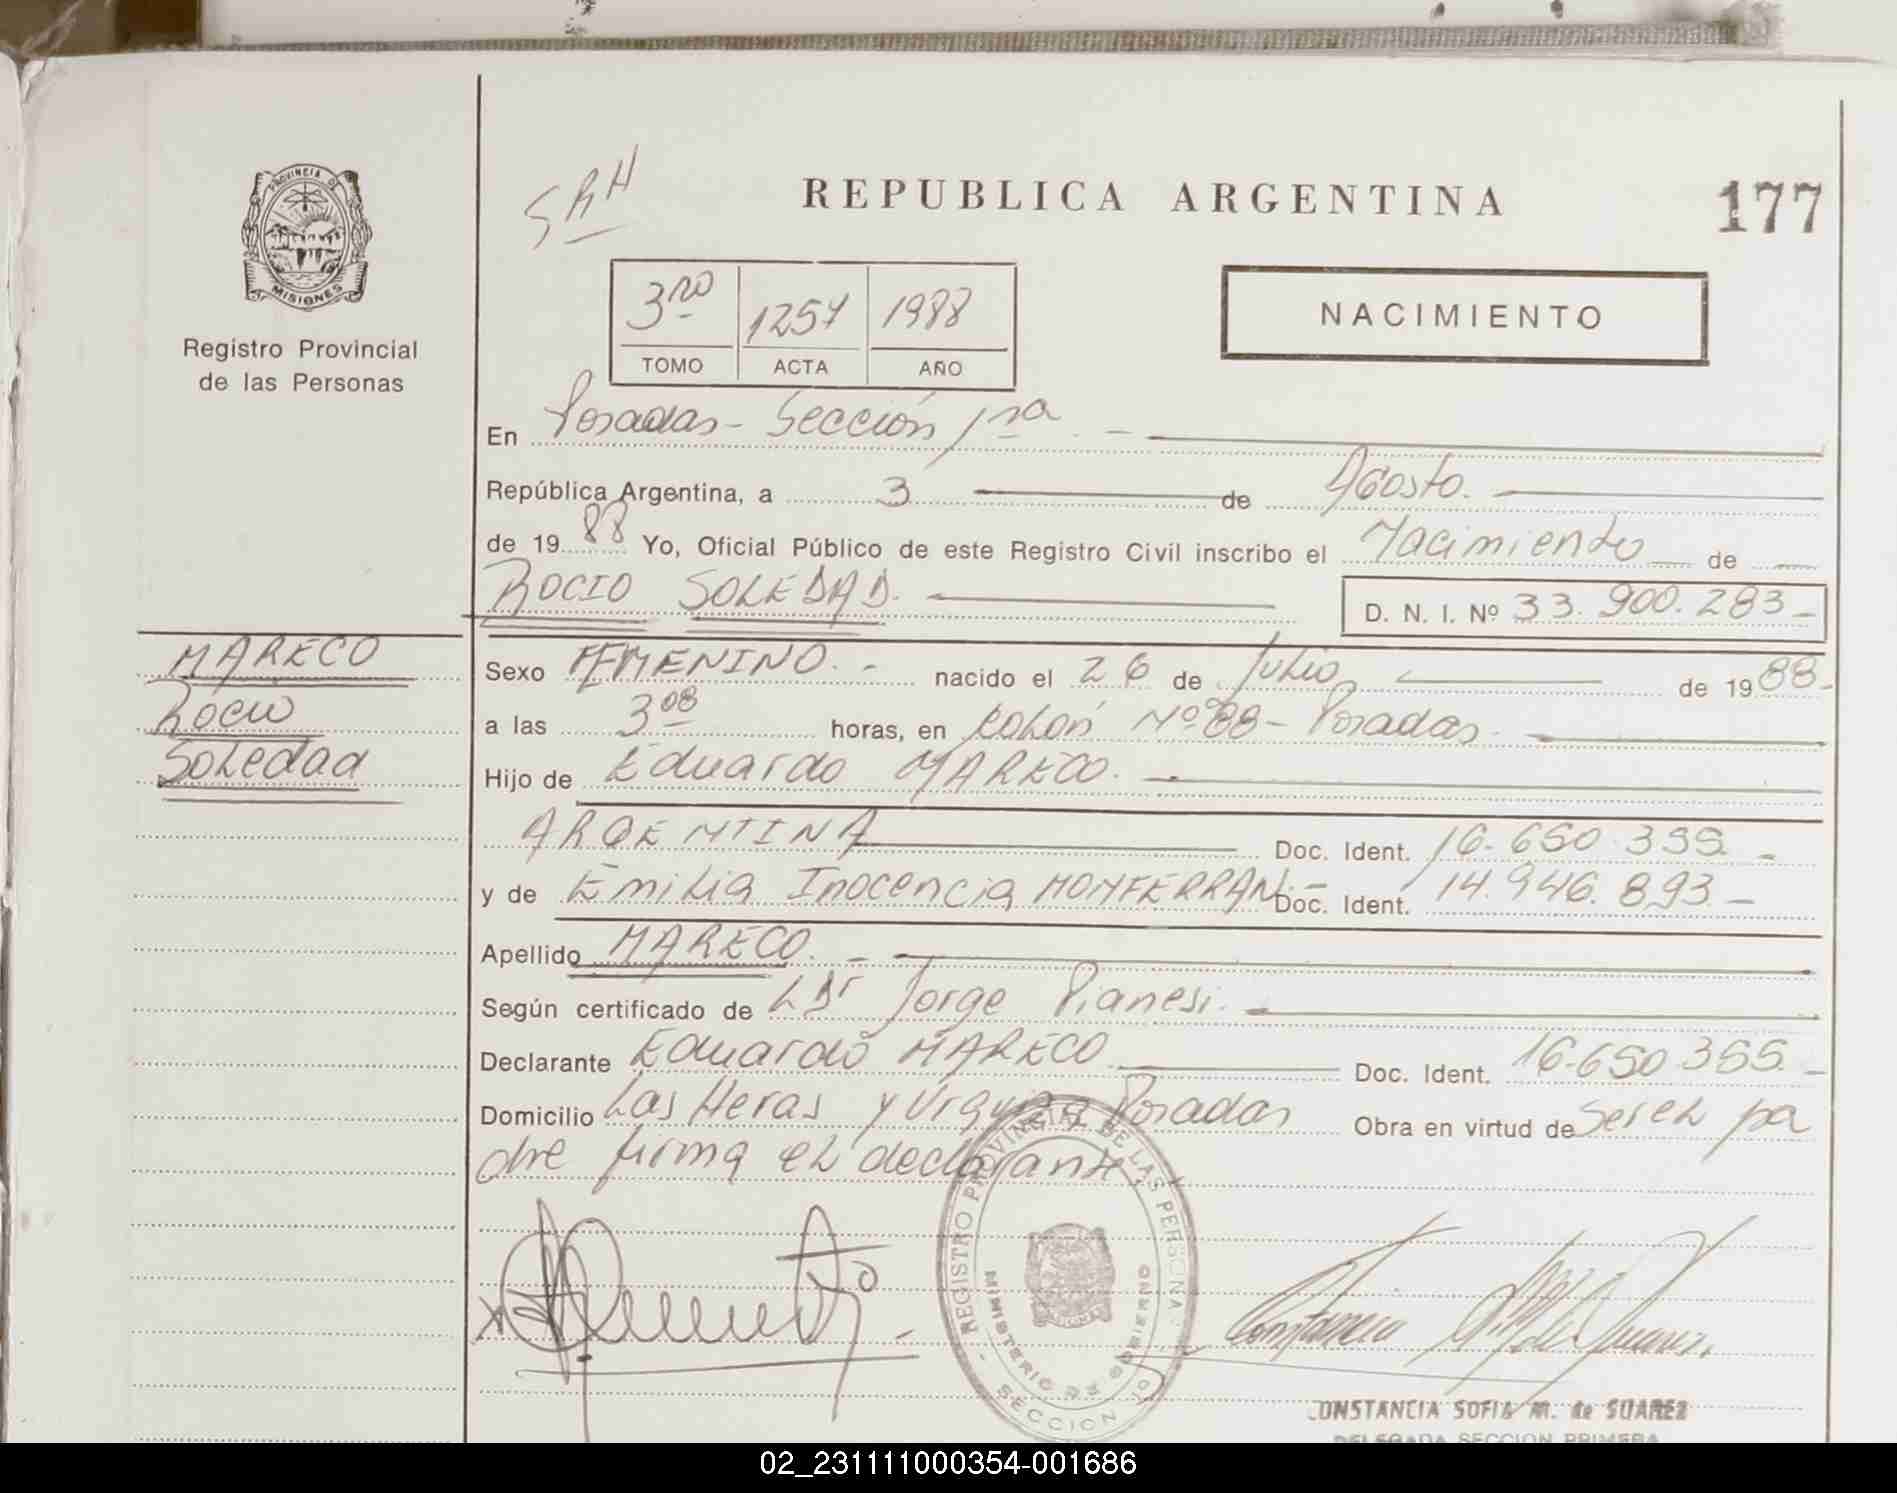 SRH
REPUBLICA ARGENTINA
177
PROVINCIA DE
MISIONES
Registro Provincial
de las Personas
3ro 1257 1988
TOMO ACTA AÑO
NACIMIENTO
En Posadas - Sección 1ra. -
República Argentina, a 3 de Agosto.
de 1988 Yo, Oficial Público de este Registro Civil inscribo el Nacimiento de
ROCIO SOLEDAD. D. N. I. Nº 33.900.283 -
MARECO
Rocio
Soledad
Sexo FEMENINO. - nacido el 26 de Julio de 1988.-
a las 3 08 horas, en Colón Nº 88 - Posadas.
Hijo de Eduardo MARECO.
ARGENTINA Doc. Ident. 16.650.355. -
y de Emilia Inocencia MONFERRAN. - Doc. Ident. 14.946.893. -
Apellido MARECO. -
Según certificado de L Dr Jorge Pianesi.
Declarante Eduardo MARECO Doc. Ident. 16.650.355. -
Domicilio Las Heras y Urquiza Posadas Obra en virtud de ser el pa
dre firma el declarante.
REGISTRO PROVINCIAL DE LAS PERSONAS
MINISTERIO DE GOBIERNO
SECCION
Constancia
CONSTANCIA SOFIA M. de SUAREZ
DELEGADA SECCION PRIMERA
02_231111000354-001686